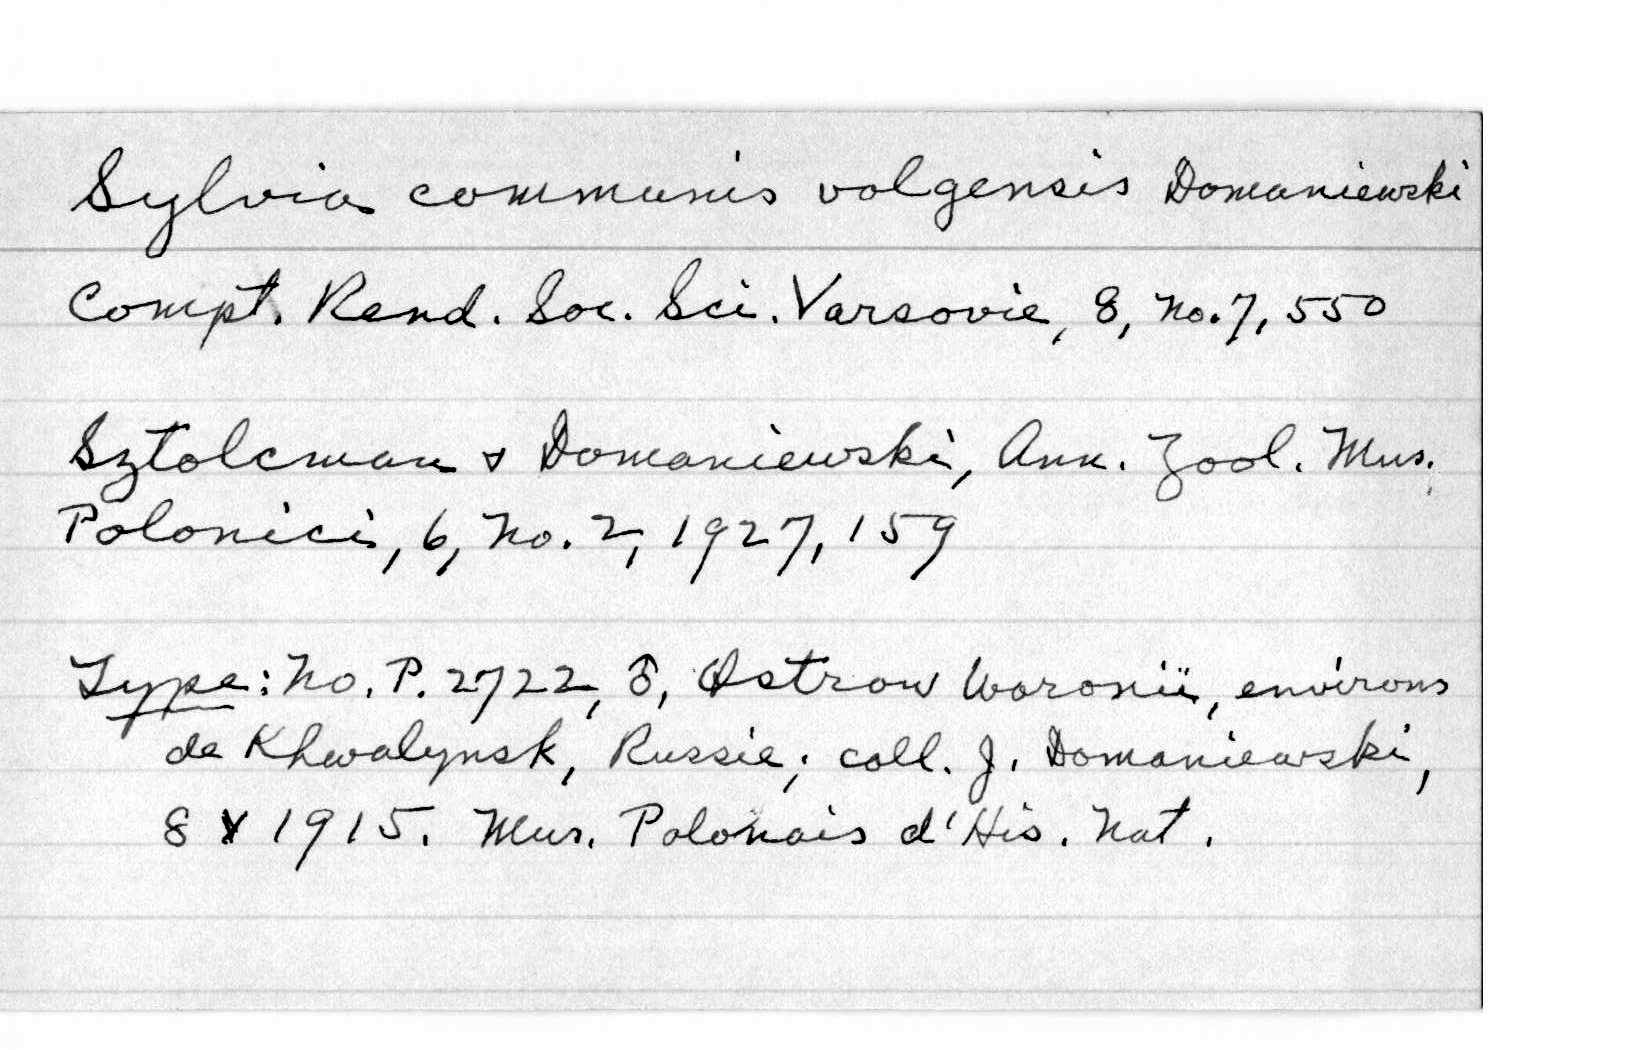 Sylvia communis volgensis Domaniewski
Compt. Rend. Soc. Sci. Varsovie, 8, No. 7, 550
Sztolcman & Domaniewski, Ann. Zool. Mus.
Polonici, 6, No. 2, 1927, 159
Type: No. P. 2722, ♂, Ostrow Woronii, environs
de Khwalynsk, Russie; coll. J. Domaniewski,
8 V 1915. Mus. Polonais d'His. Nat.